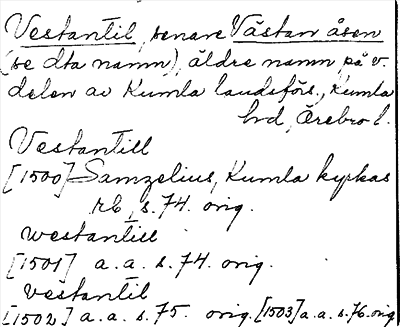 Vestantil, senare Västanåsen
(se dta namn), äldre namn på v.
delen av Kumla landsförs., Kumla
hd, Örebro l.
Vestantill
[1500] Samzelius, Kumla kyrkas
rb, s. 74. orig.
westantill
[1501] a.a. s. 74. orig.
vestantil
[1502] a.a. s. 75. orig. [1503] a.a. s. 76. orig.